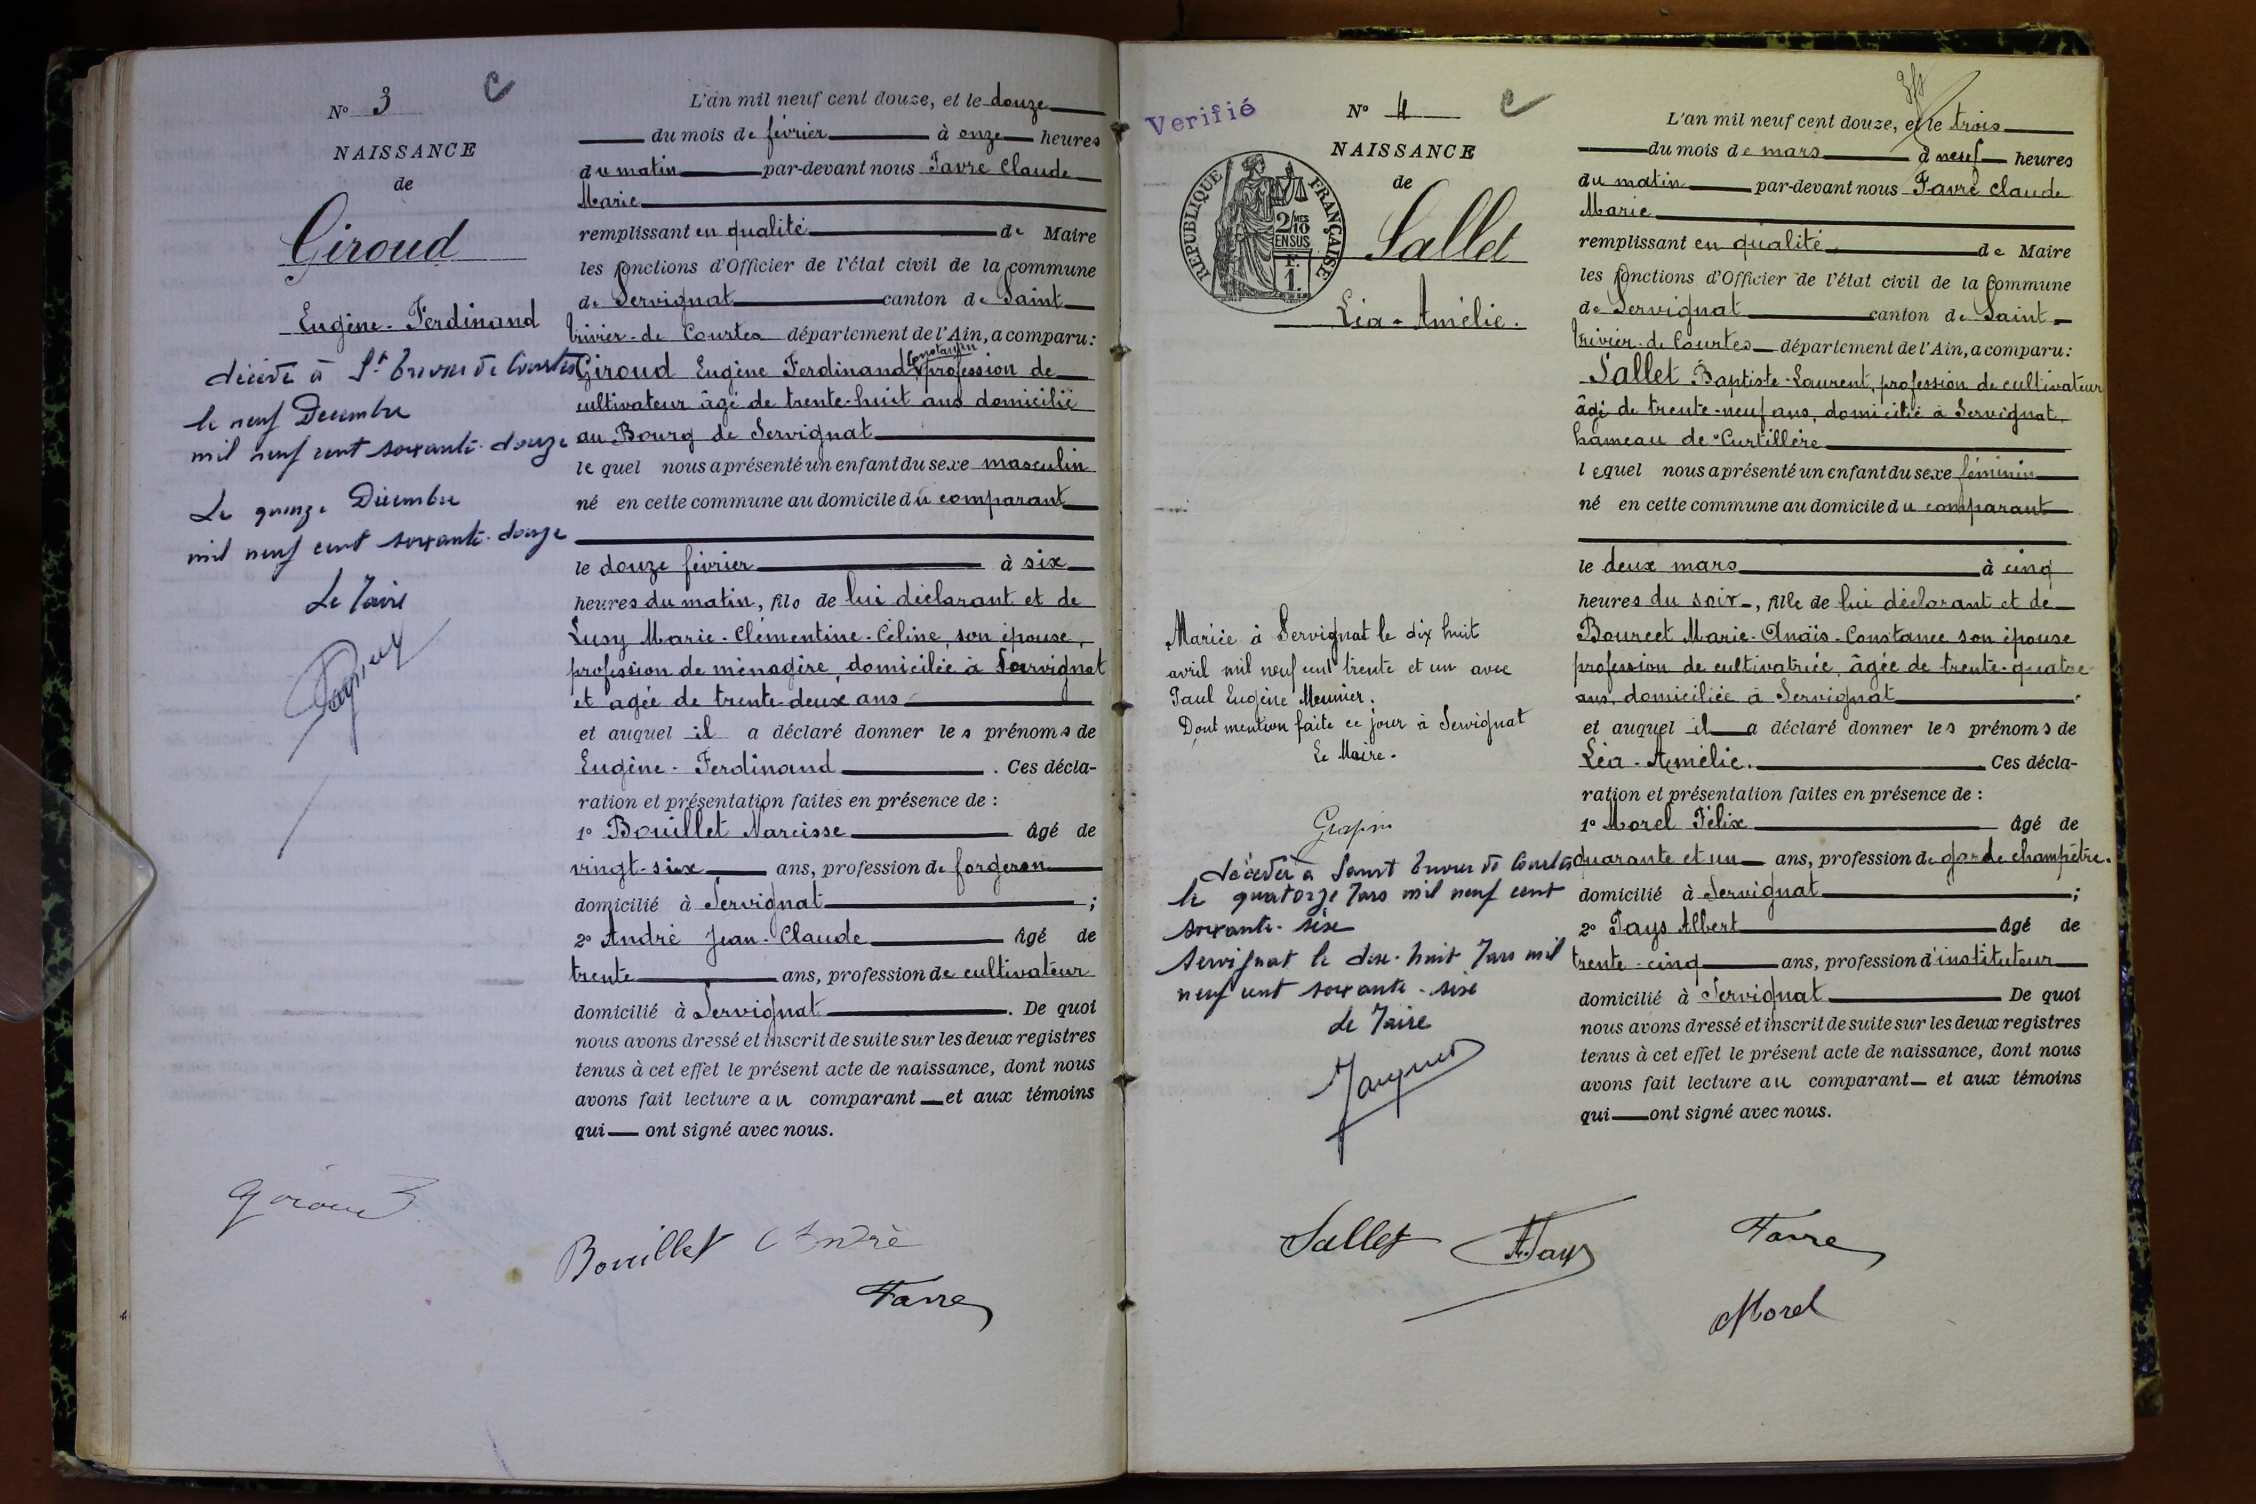 N° 3
NAISSANCE
de
Giroud
Eugène-Ferdinand
décédé à St Trivier de Courtes
le neuf Decembre
mil neuf cent soixante-douze
Le quinze Décembre
mil neuf cent soixante-douze
Le Maire
L'an mil neuf cent douze, et le douze
du mois de février à onze heures
du matin par-devant nous Favre Claude
Marie
remplissant en qualité de Maire
les fonctions d'Officier de l'état civil de la commune
de Servignat canton de Saint
Trivier-de Courtes département de l'Ain, a comparu:
Constantin
Giroud Eugène Ferdinand profession de
cultivateur âgé de trente-huit ans domicilié
au Bourg de Servignat
le quel nous a présenté un enfant du sexe masculin
né en cette commune au domicile du comparant
le douze février à six
heures du matin, fils de lui déclarant et de
Lusy Marie-Clémentine-Céline, son épouse,
profession de ménagère, domiciliée à Servignat
et agée de trente-deux ans
et auquel il a déclaré donner les prénoms de
Eugène-Ferdinand. Ces décla-
ration et présentation faites en présence de :
1° Bouillet Narcisse âgé de
vingt-six ans, profession de forgeron
domicilié à Servignat ;
2° André Jean-Claude âgé de
trente ans, profession de cultivateur
domicilié à Servignat. De quoi
nous avons dressé et inscrit de suite sur les deux registres
tenus à cet effet le présent acte de naissance, dont nous
avons fait lecture au comparant et aux témoins
qui ont signé avec nous.
Giroud
Bouillet André
Favre
Verifié
N° 4
NAISSANCE
de
RÉPUBLIQUE FRANÇAISE
2/10 MES
EN SUS
F.
1.
Sallet
Léa-Amélie.
Mariée à Servignat le dix huit
avril mil neuf cent trente et un avec
Paul Eugène Meunier.
Dont mention faite ce jour à Servignat
Le Maire.
décédée à Saint Trivier de Courtes
le quatorze Mars mil neuf cent
soixante-seize
Servignat le dix-huit Mars mil
neuf cent soixante-seize
Le Maire
L'an mil neuf cent douze, et le trois
du mois de mars à neuf heures
du matin par-devant nous Favre Claude
Marie
remplissant en qualité de Maire
les fonctions d'Officier de l'état civil de la Commune
de Servignat canton de Saint-
Trivier-de Courtes département de l'Ain, a comparu:
Sallet Baptiste-Laurent, profession de cultivateur
âgé de trente-neuf ans, domicilié à Servignat,
hameau de Curtillère
lequel nous a présenté un enfant du sexe féminin
né en cette commune au domicile du comparant
le deux mars à cinq
heures du soir, fille de lui déclarant et de
Bourcet Marie-Anaïs-Constance son épouse
profession de cultivatrice, âgée de trente-quatre
ans, domiciliée à Servignat
et auquel il a déclaré donner les prénoms de
Léa-Amélie. Ces décla-
ration et présentation faites en présence de :
1° Morel Félix âgé de
quarante et un ans, profession de garde champêtre.
domicilié à Servignat ;
2° Pays Albert âgé de
trente-cinq ans, profession d'instituteur
domicilié à Servignat De quoi
nous avons dressé et inscrit de suite sur les deux registres
tenus à cet effet le présent acte de naissance, dont nous
avons fait lecture au comparant et aux témoins
qui ont signé avec nous.
Sallet A. Pays Favre
Morel